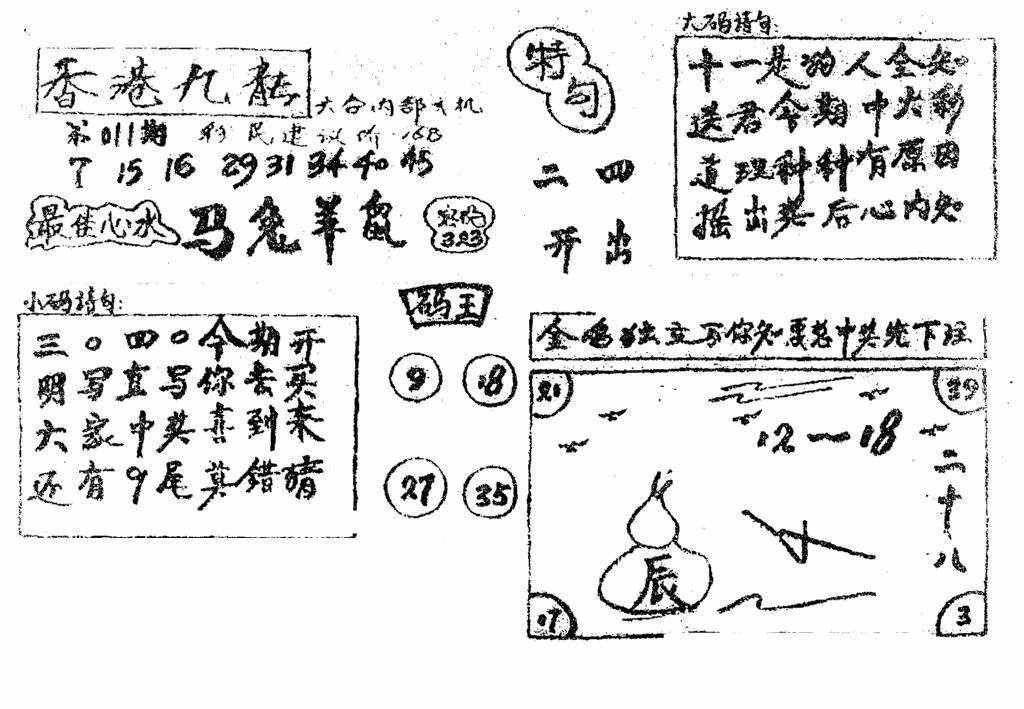 香港九龍
六合内部
第011期
7 15 16 29 31 34 40 45
最佳心水
马兔羊鼠
323
特句
二四
开出
大码诗句:
十一是狗人全知
送君今期中大彩
道理种种有原因
摇出奖后心内知
小码诗句:
三0四0今期开
明写直写你去买
大家中奖喜到来
还有9尾莫错猜
码王
9 18
27 35
金鸡独立写你知要想中奖先下注
21
39
12一18
二十八
辰
17
3